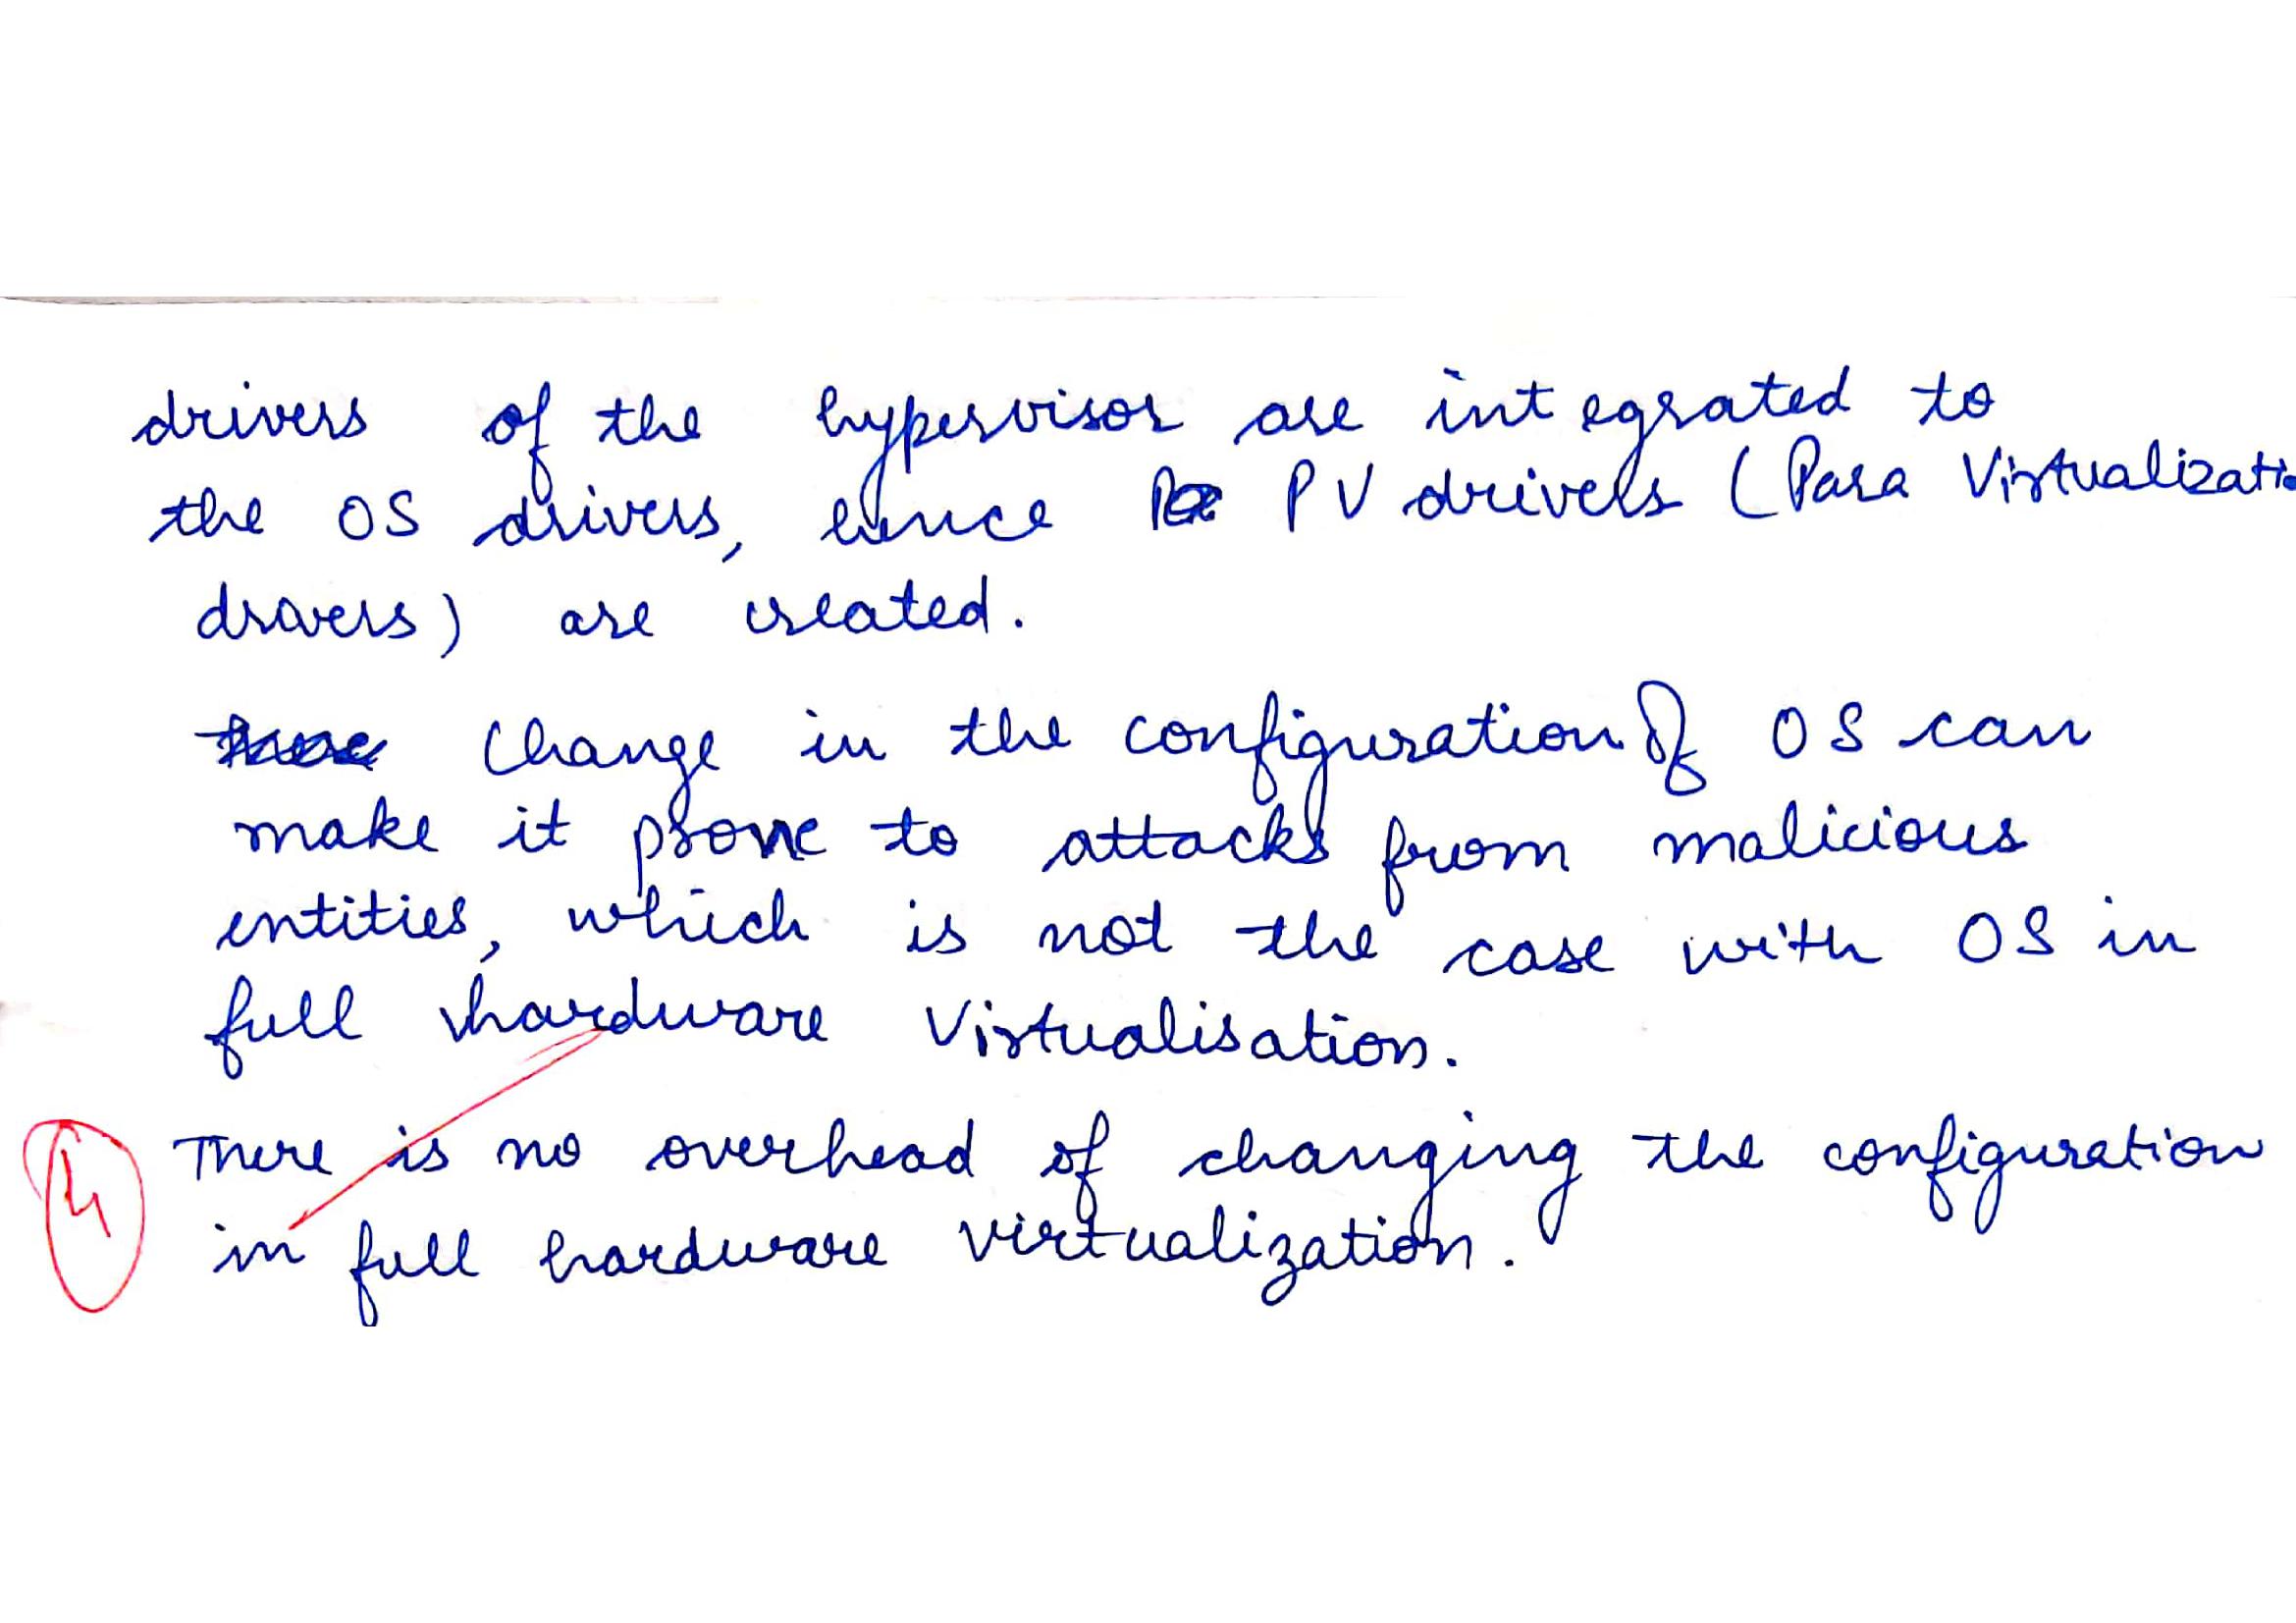 drivers of the hypervisor are integrated to
the OS drivers, hence PV drivers (Para Virtualizatio
drivers) are created.
Change in the configuration of OS can
make it prone to attacks from malicious
entities, which is not the case with OS in
full hardware Virtualisation.
There is no overhead of changing the configuration
in full hardware virtualization.
4